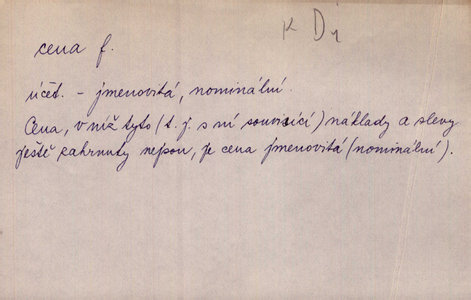 K Dř
cena f.
účet. - jmenovitá, nominální.
Cena, v níž tyto (t. j. s ní souvisící) náklady a slevy
ještě zahrnuty nejsou, je cena jmenovitá (nominální).